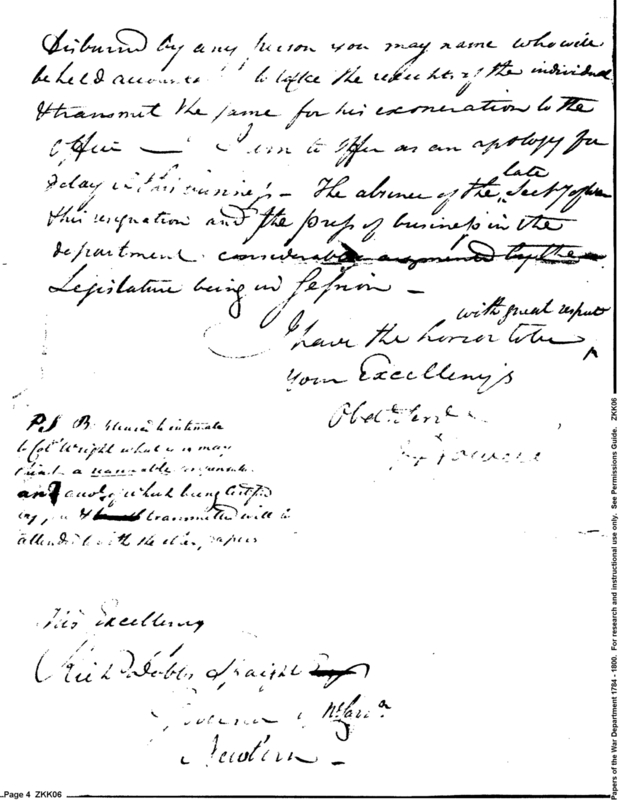 Disbursed by any person you may name who will
be held accounta to take the receipts of the individual
& transmit the same for his exoneration to the
office — I to offer as an apology for
delay in this business — The absence of the late Secty of war
his resignation and the press of business in the
department considerably augmented by the
Legislature being in Session —
I have the honor to be with great respect
Your Excellency's
Obedt Servt
PS Be pleased to intimate
to Col Wright what you may
think a reasonable
and which being certified
by you & transmitted will be
attended with the other papers
His Excellency
Richd Dobbs Spaight
Governor of No Cara
Newbern —
Page 4 ZKK06
Papers of the War Department 1784 - 1800. For research and instructional use only. See Permissions Guide. ZKK06